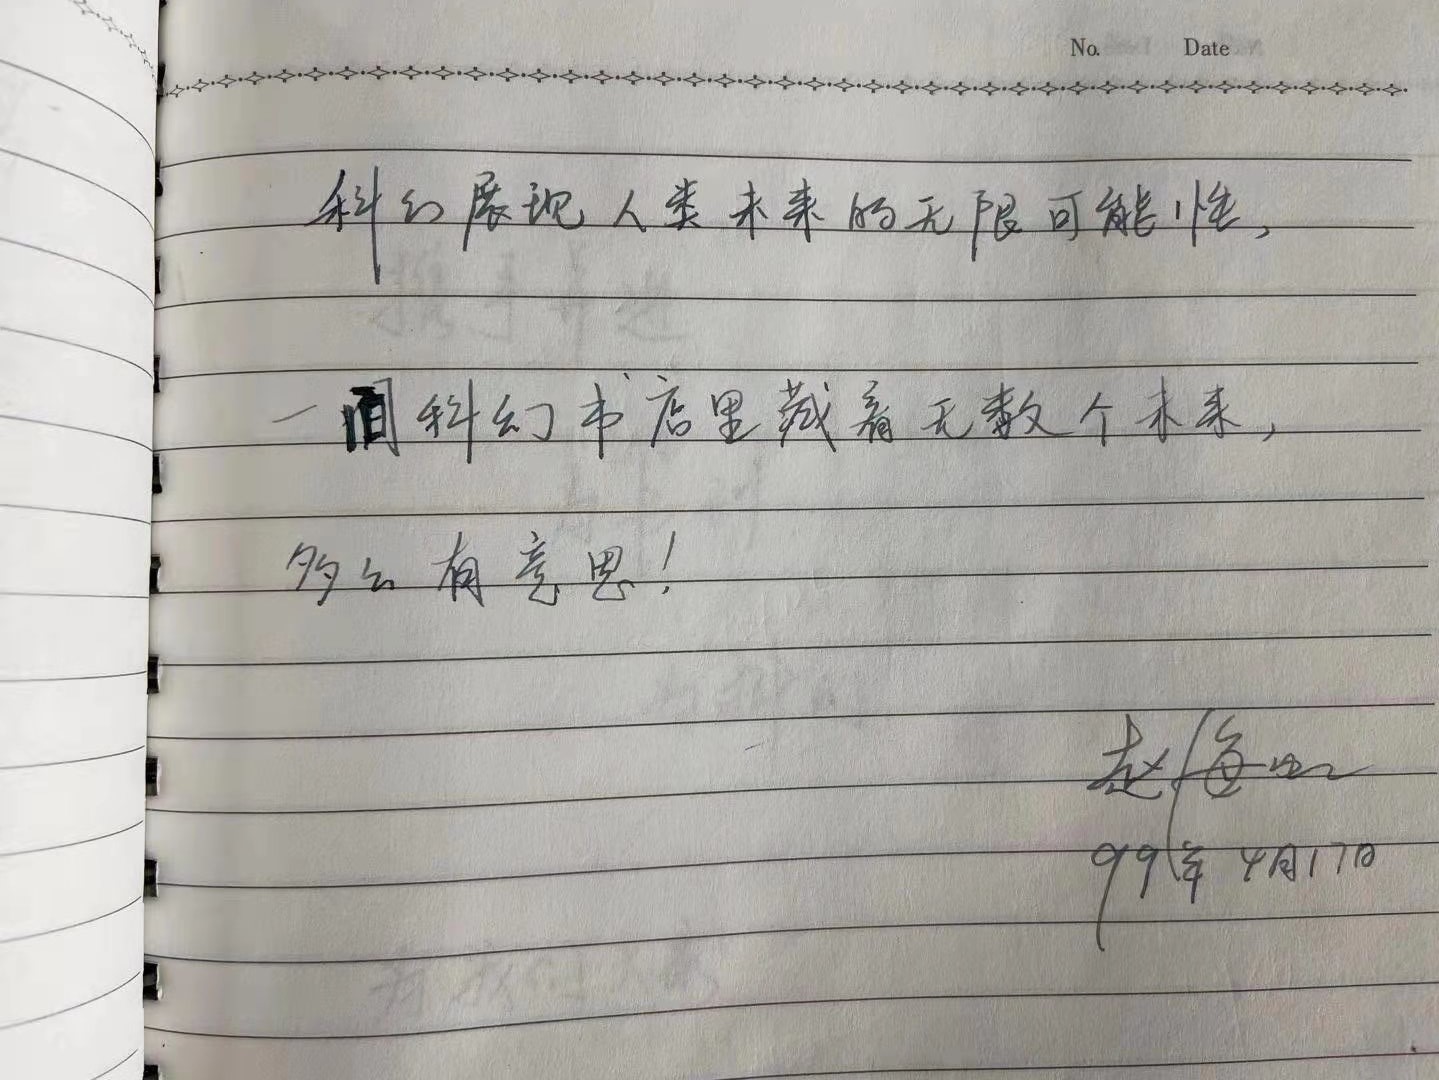 No. Date
科幻展现人类未来的无限可能性,
一间科幻书店里藏着无数个未来,
多么有意思!
赵海虹
99年4月17日